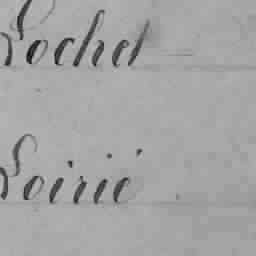 Rochet
Loirié